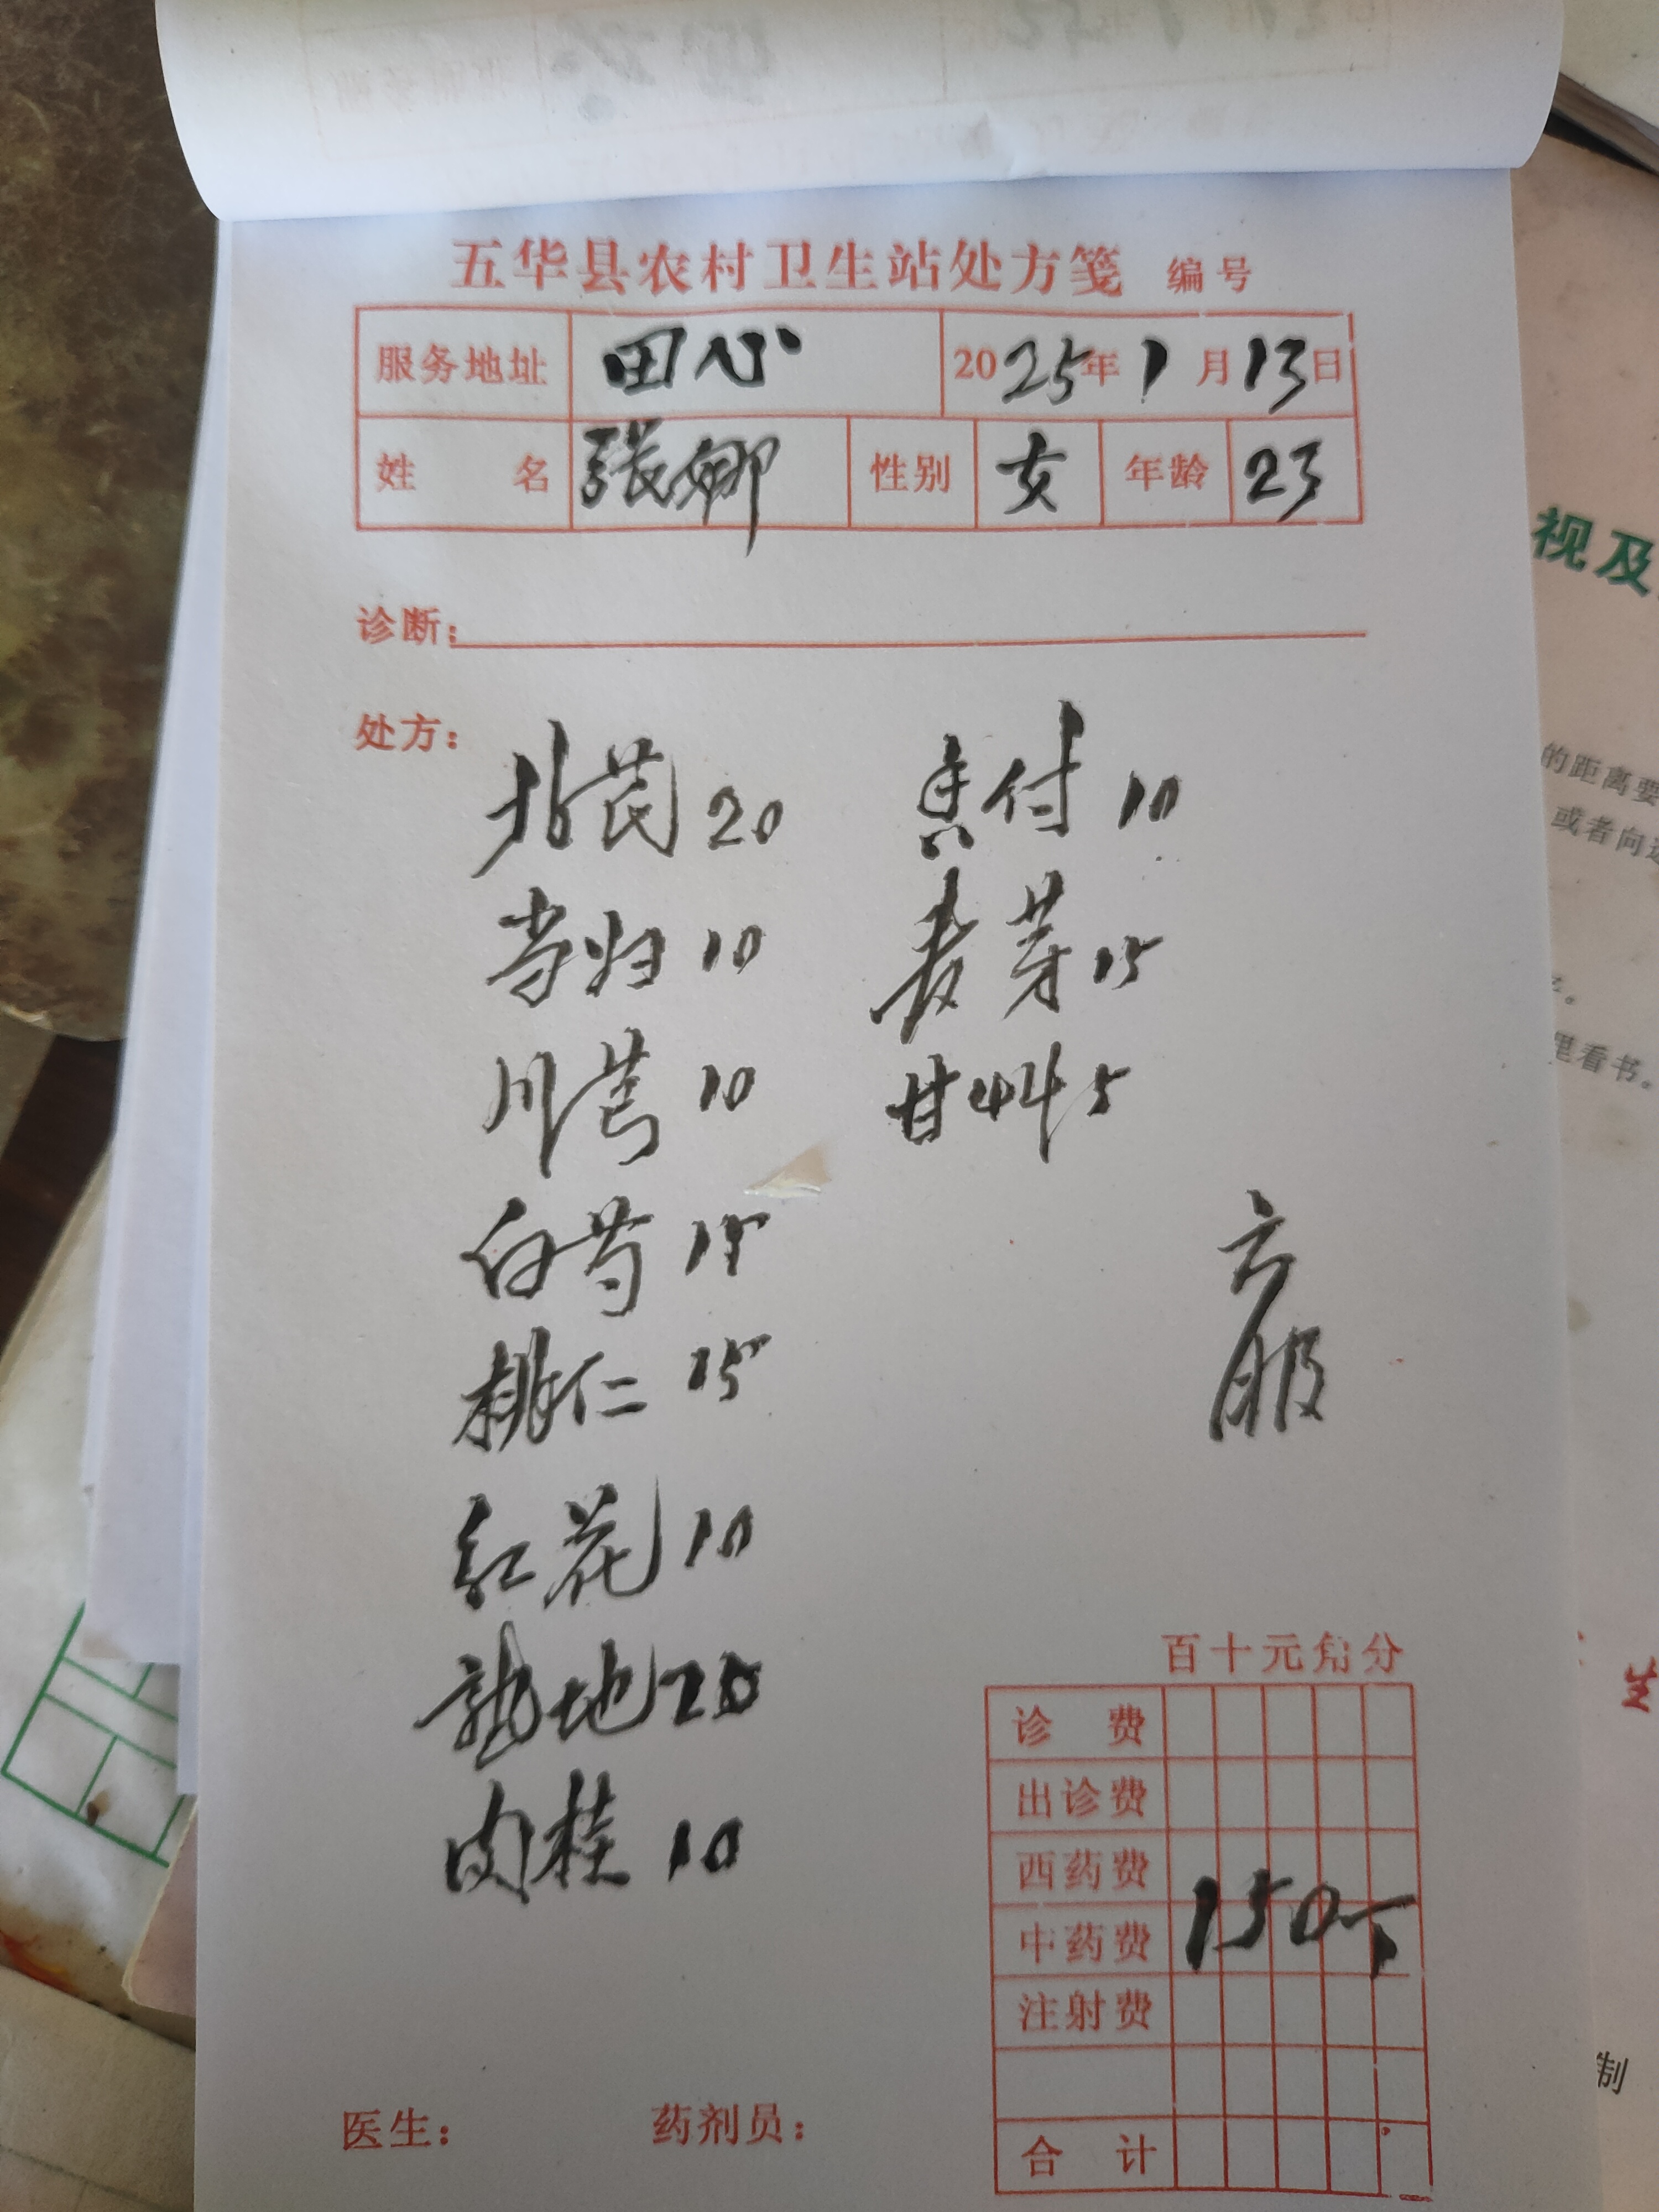 五华县农村卫生站处方笺 编号
服务地址 田心 2025年1月13日
姓名 张娜 性别 女 年龄 23
诊断:
处方:
北芪 20 香付 10
当归 10 麦芽 15
川芎 10 甘草 5
白芍 15
桃仁 15
红花 10
熟地 20
肉桂 10
六服
百十元角分
诊费
出诊费
西药费
中药费 150
注射费
合计
医生: 药剂员:
视及
的距离要
或者向
里看书。
生
制